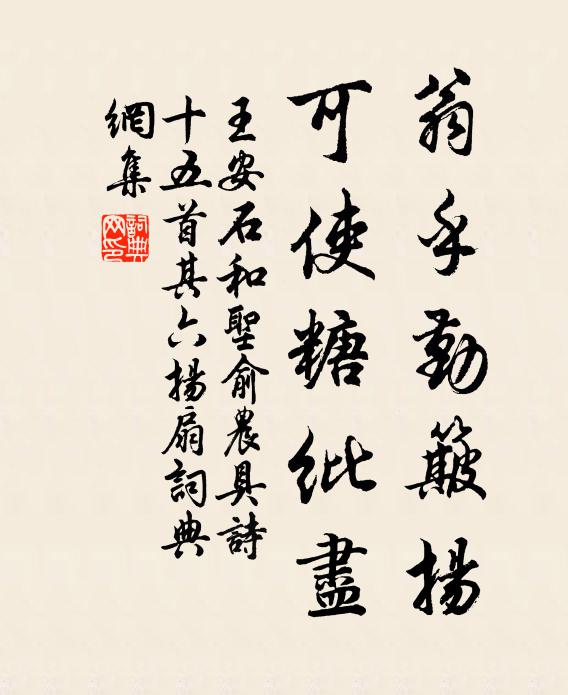 翁乎勤簸揚
可使糖紕盡
王安石和聖俞農具詩
十五首其六揚扇詞典
網集
詞典
网印